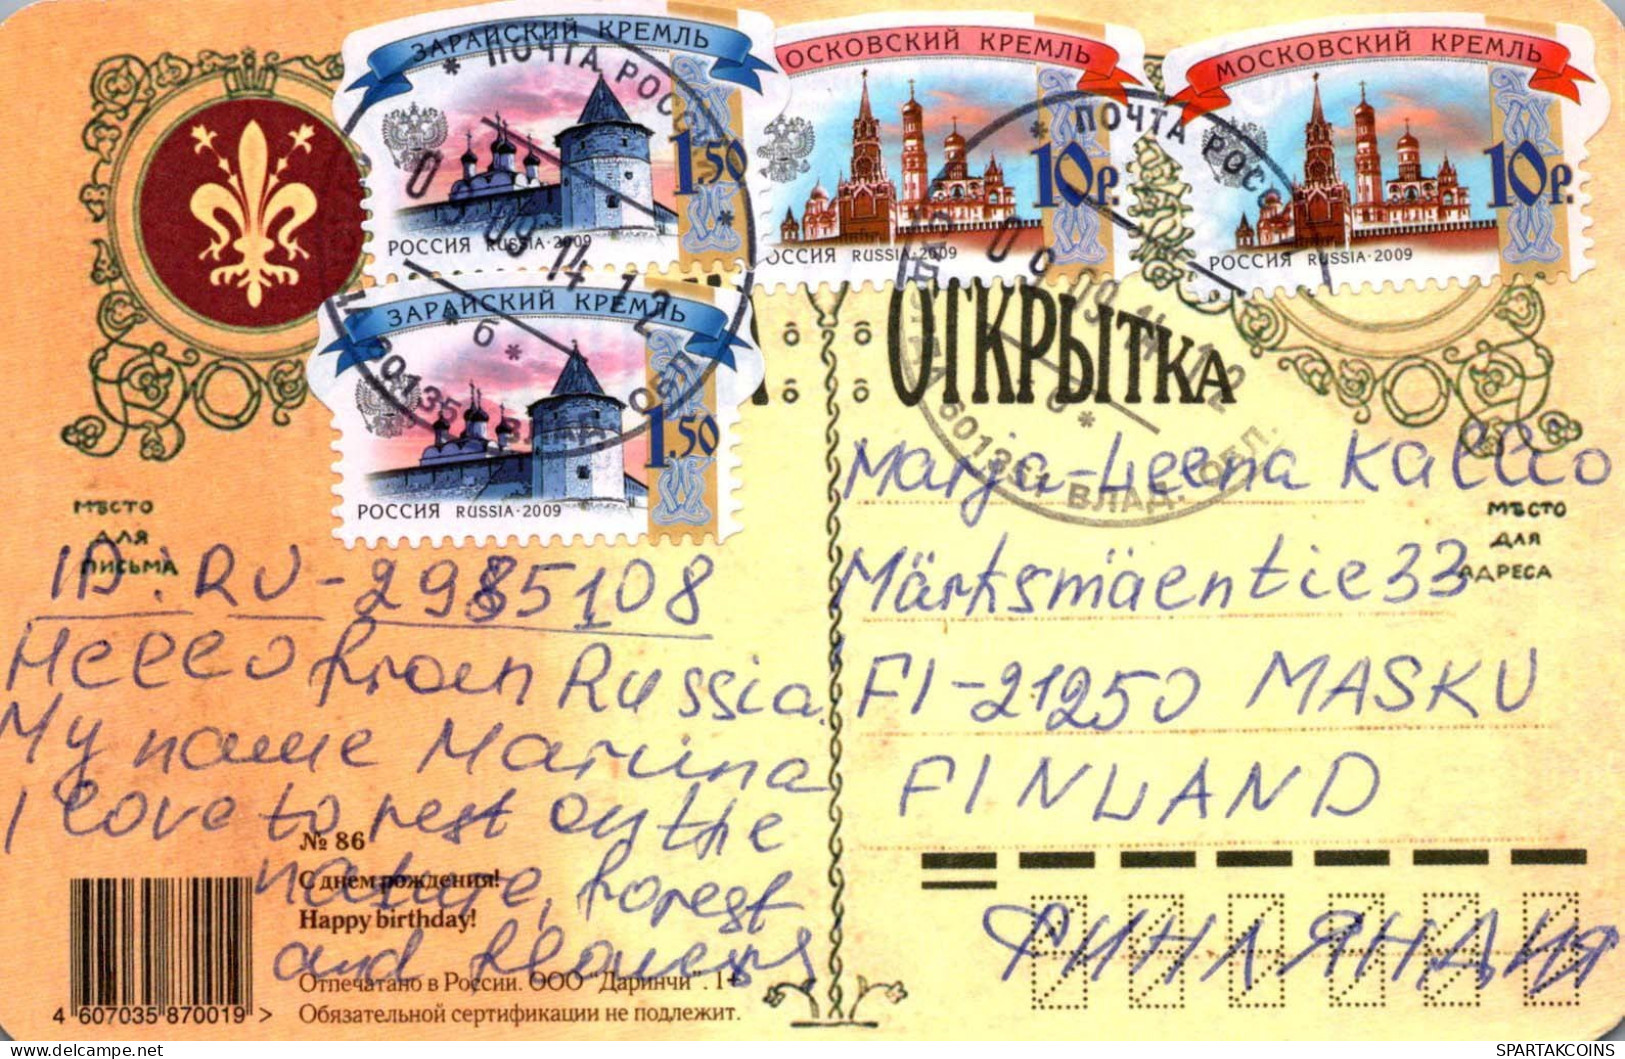 ЗАРАЙСКИЙ КРЕМЛЬ
1.50
РОССИЯ RUSSIA·2009
ОСКОВСКИЙ КРЕМЛЬ
10Р.
ОССИЯ RUSSIA·2009
МОСКОВСКИЙ КРЕМЛЬ
10Р.
РОССИЯ RUSSIA·2009
ЗАРАЙСКИЙ КРЕМЛЬ
1.50
РОССИЯ RUSSIA·2009
* ПОЧТА РОССИ
09 14 12
б *
601351 ВЛАД. ОБЛ.
* ПОЧТА РОСС
09 14 12
б *
601351 ВЛАД. ОБЛ.
ОТКРЫТКА
МѢСТО
ДЛЯ
ПИСЬМА
ID: RU-2985108
Hello from Russia.
My name Marina
I love to rest on the
nature, forest
and flowers
№ 86
С днем рождения!
Happy birthday!
Отпечатано в России. ООО "Даринчи". 1+
Обязательной сертификации не подлежит.
4 607035 870019 >
Marja-Leena Kallio
МѢСТО
ДЛЯ
АДРЕСА
Märksmäentie 33
FI-21250 MASKU
FINLAND
ФИНЛЯНДИЯ
www.delcampe.net
SPARTAKCOINS